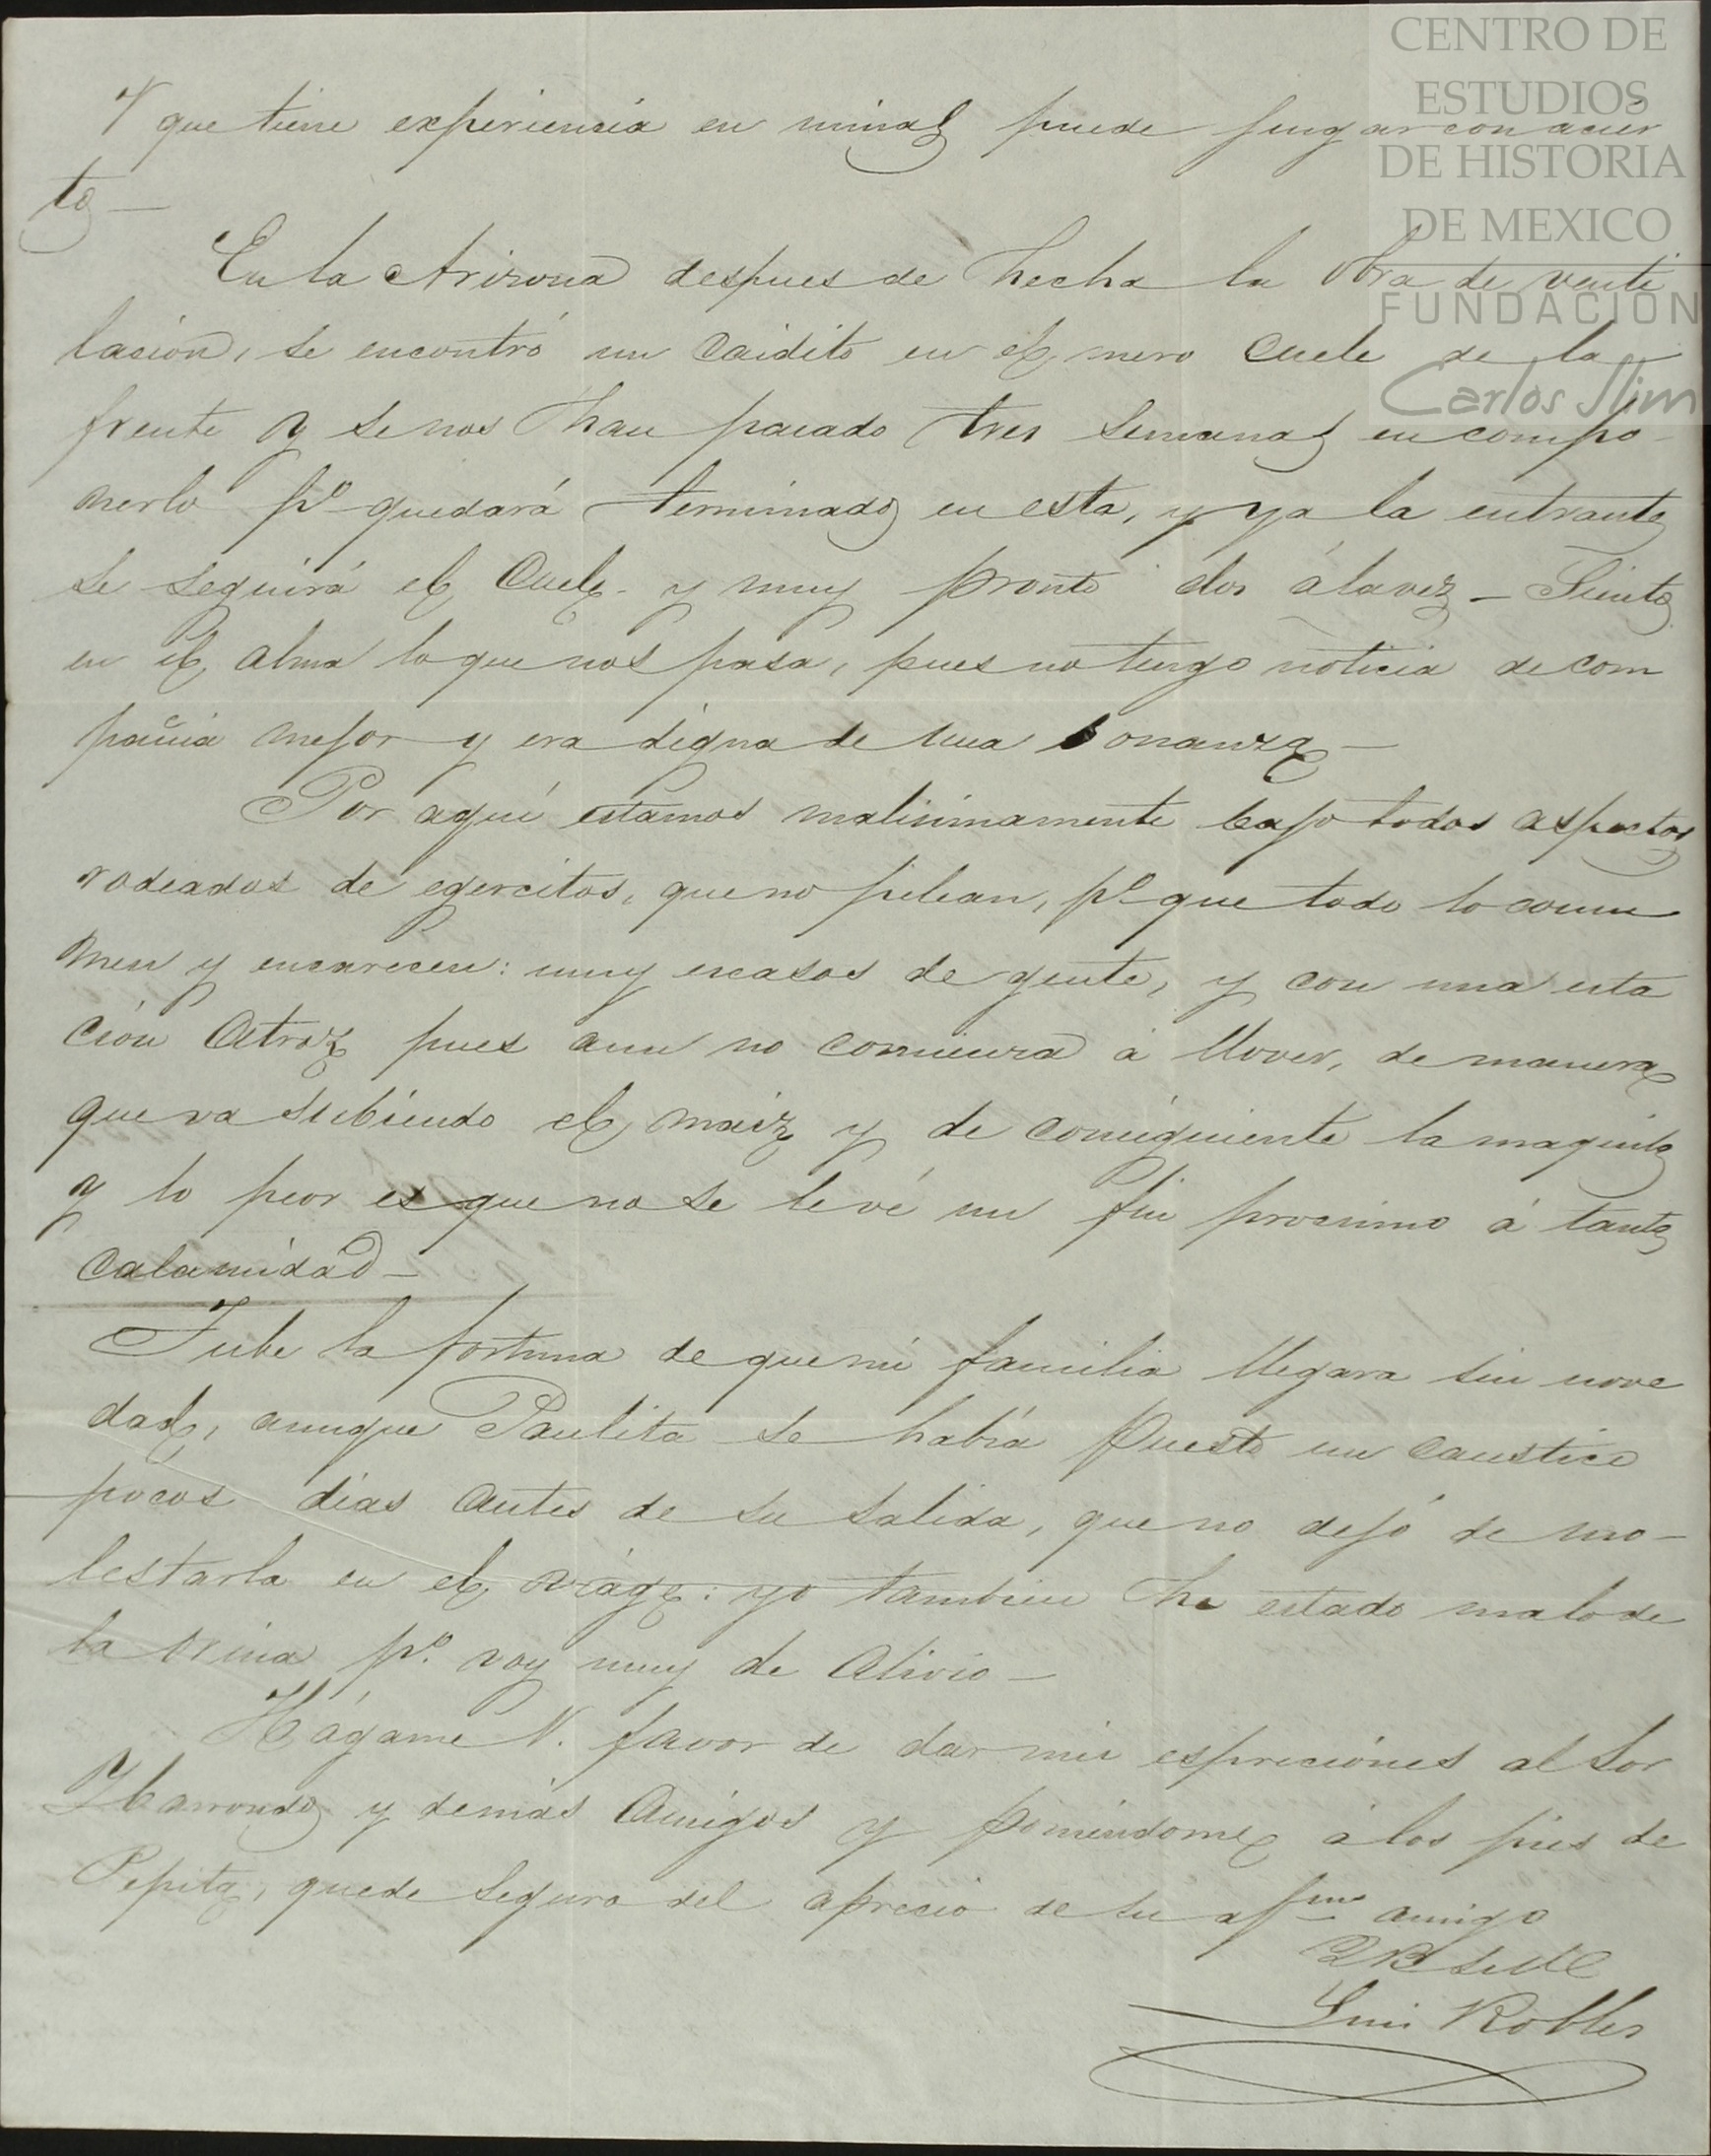 CENTRO DE
ESTUDIOS
DE HISTORIA
DE MEXICO
FUNDACIÓN
Carlos Slim
V que tiene experiencia en minas puede jusgar con acier
to —
En la Arizona despues de hecha la obra de venti
lacion, se encontró un caidito en el mero cuele de la
frente y se nos han pasado tres semanas en compo-
nerlo pº quedará terminado en esta, y ya la entrante
se seguirá el cuele y muy pronto dos á la vez — Siento
en el alma lo que nos pasa, pues no tengo noticia de com
pañia mejor y era digna de una bonanza —
Por aquí estamos malisimamente bajo todos aspectos
rodeados de egercitos, que no pelean, pº que todo lo consu
men y encarecen: muy escasos de gente, y con una esta
ción atroz pues aun no comienza á llover, de manera
que va subiendo el maiz y de consiguiente la maquila
y lo peor es que no se le vé un fin procsimo á tanta
calamidad —
Tube la fortuna de que mi familia llegara sin nove
dad, aunque Paulita se habia puesto un caustico
pocos dias antes de su salida, que no dejó de mo-
lestarla en el viage: yo tambien he estado malo de
la orina pº voy muy de alivio —
Hágame V. favor de dar mis espreciones al Sor
Ybarrondo y demás amigos y poniendome á los pies de
Pepita, quede seguro del aprecio de su affmo amigo
Q B S M
Luis Robles